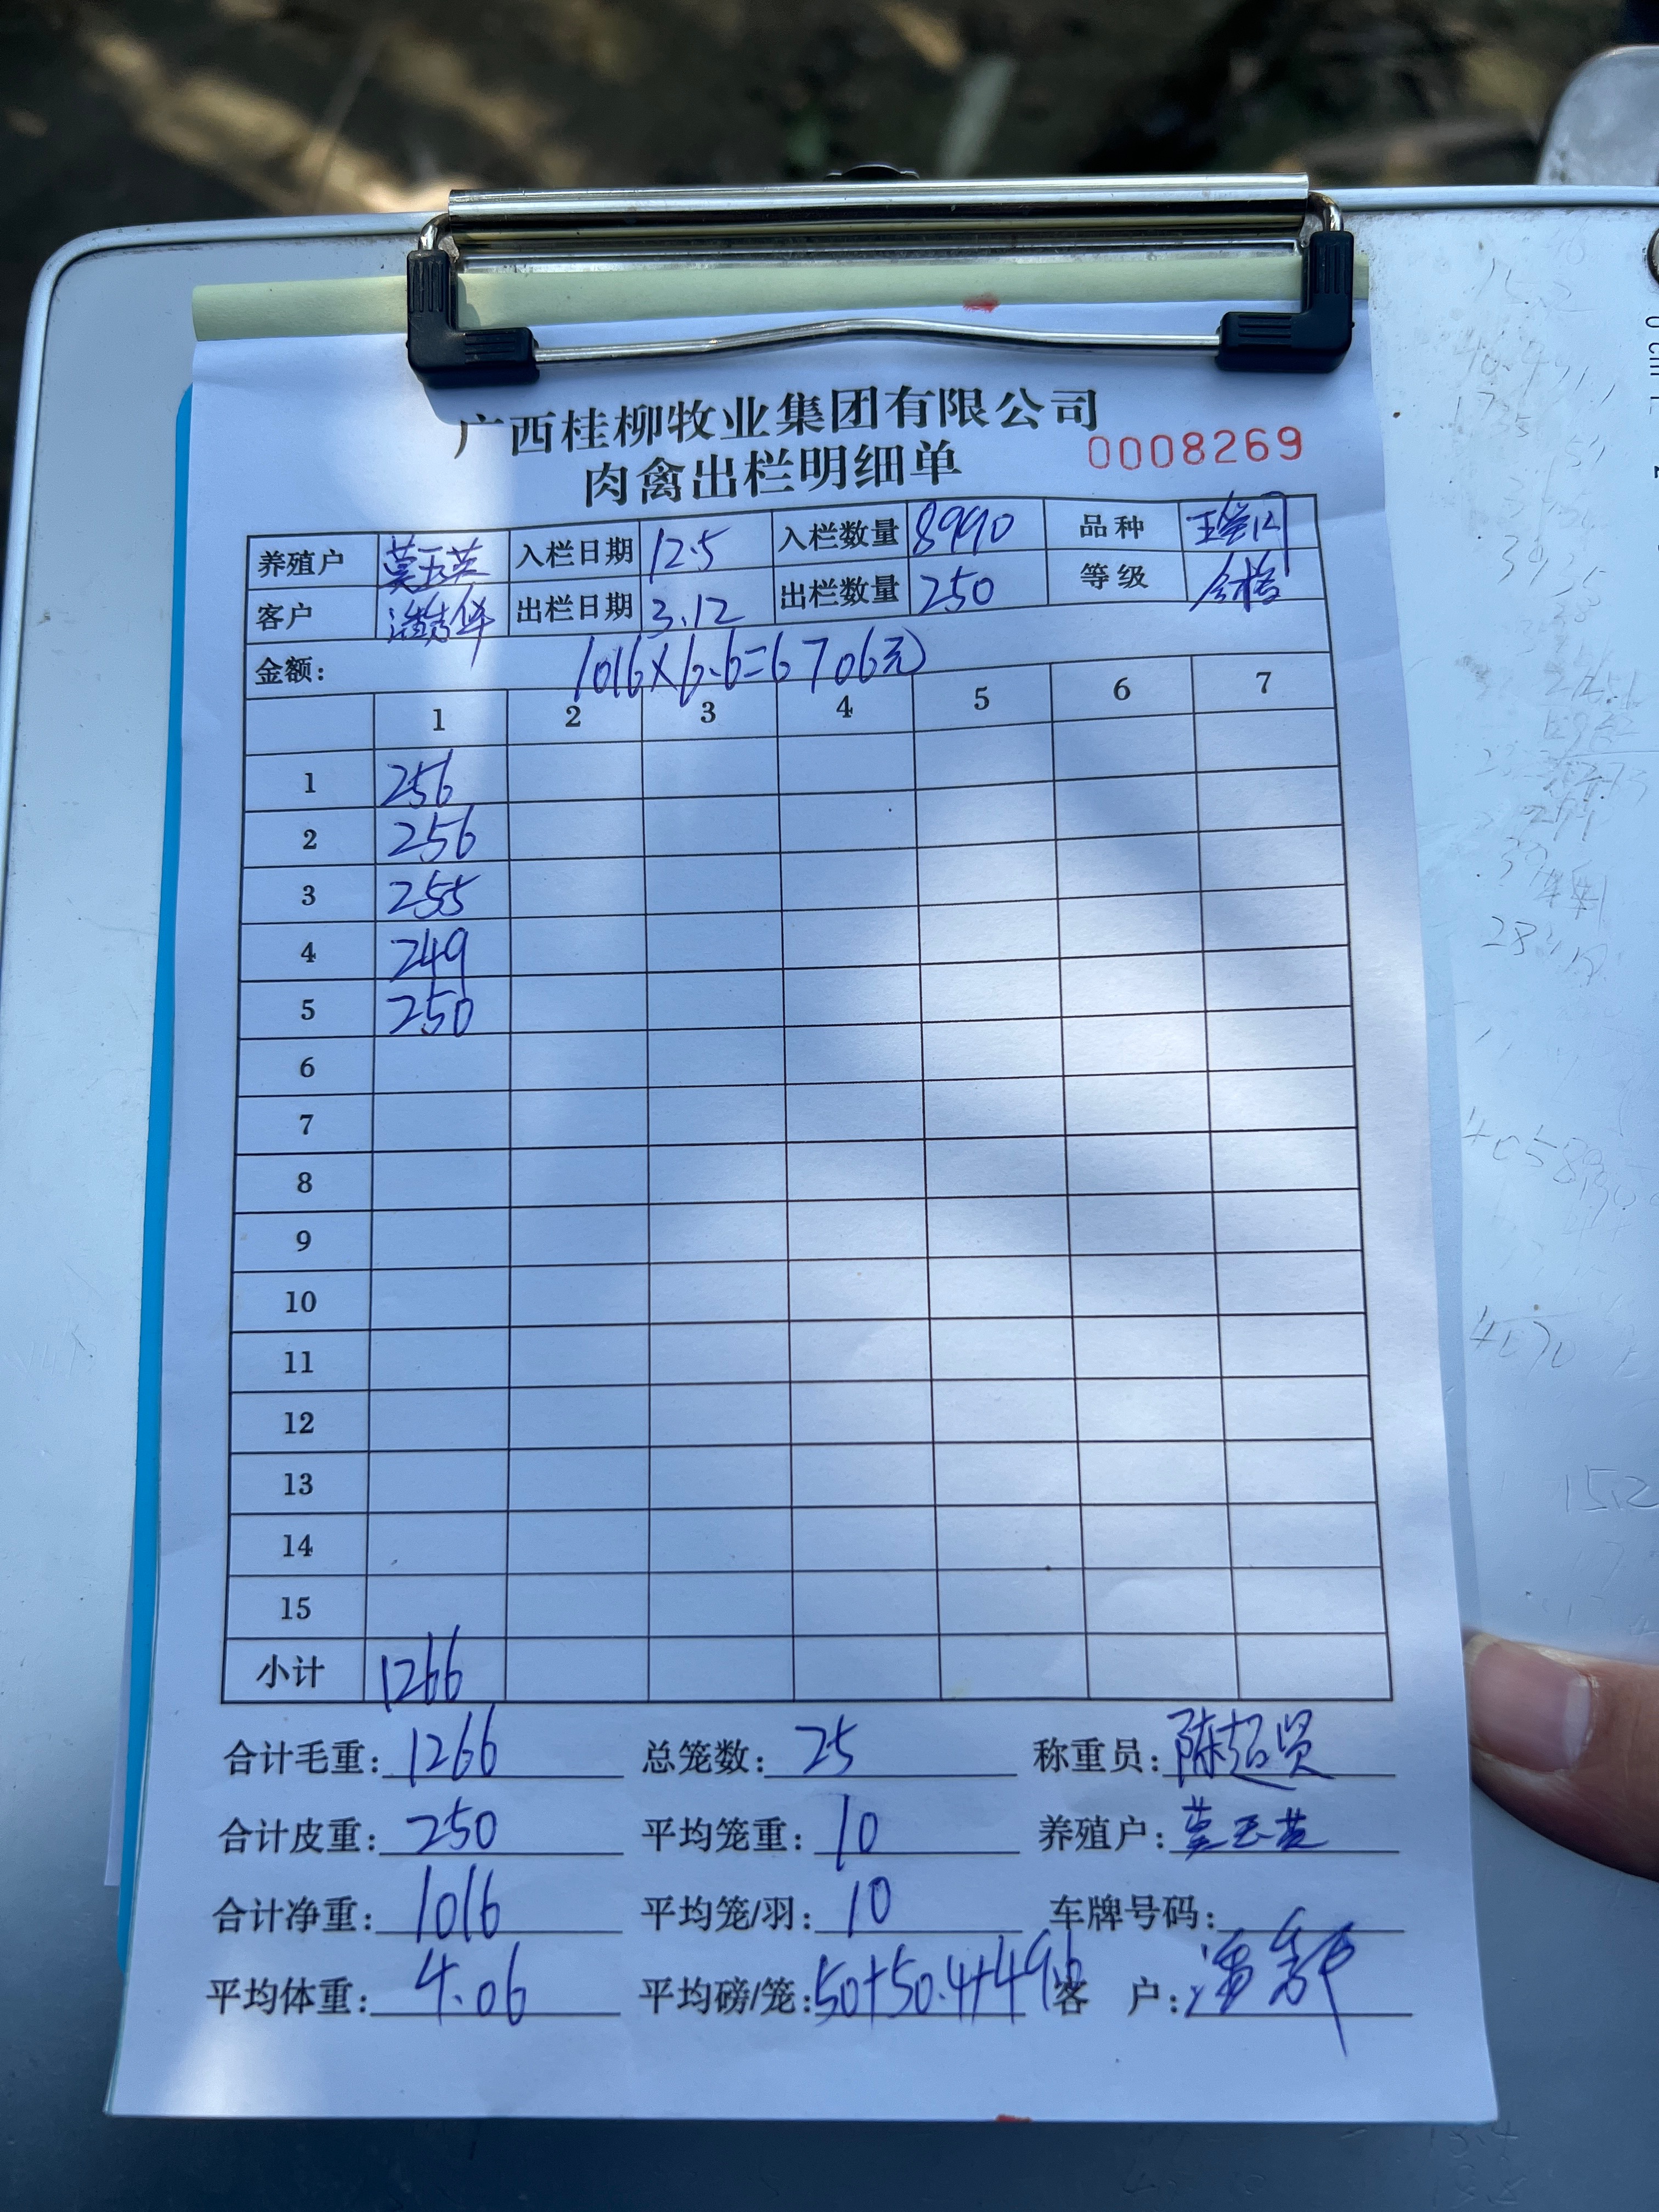 广西桂柳牧业集团有限公司
肉禽出栏明细单 0008269
养殖户 莫玉英 入栏日期 12.5 入栏数量 8990 品种
客户 出栏日期 3.12 出栏数量 250 等级 合格
金额: 1016×6.6=6706元
1 2 3 4 5 6 7
1 256
2 256
3 255
4 249
5 250
6
7
8
9
10
11
12
13
14
15
小计 1266
合计毛重: 1266 总笼数: 25 称重员: 陈超贤
合计皮重: 250 平均笼重: 10 养殖户: 莫玉英
合计净重: 1016 平均笼/羽: 10 车牌号码:
平均体重: 4.06 平均磅/笼: 50+50.4+49.6 客 户: